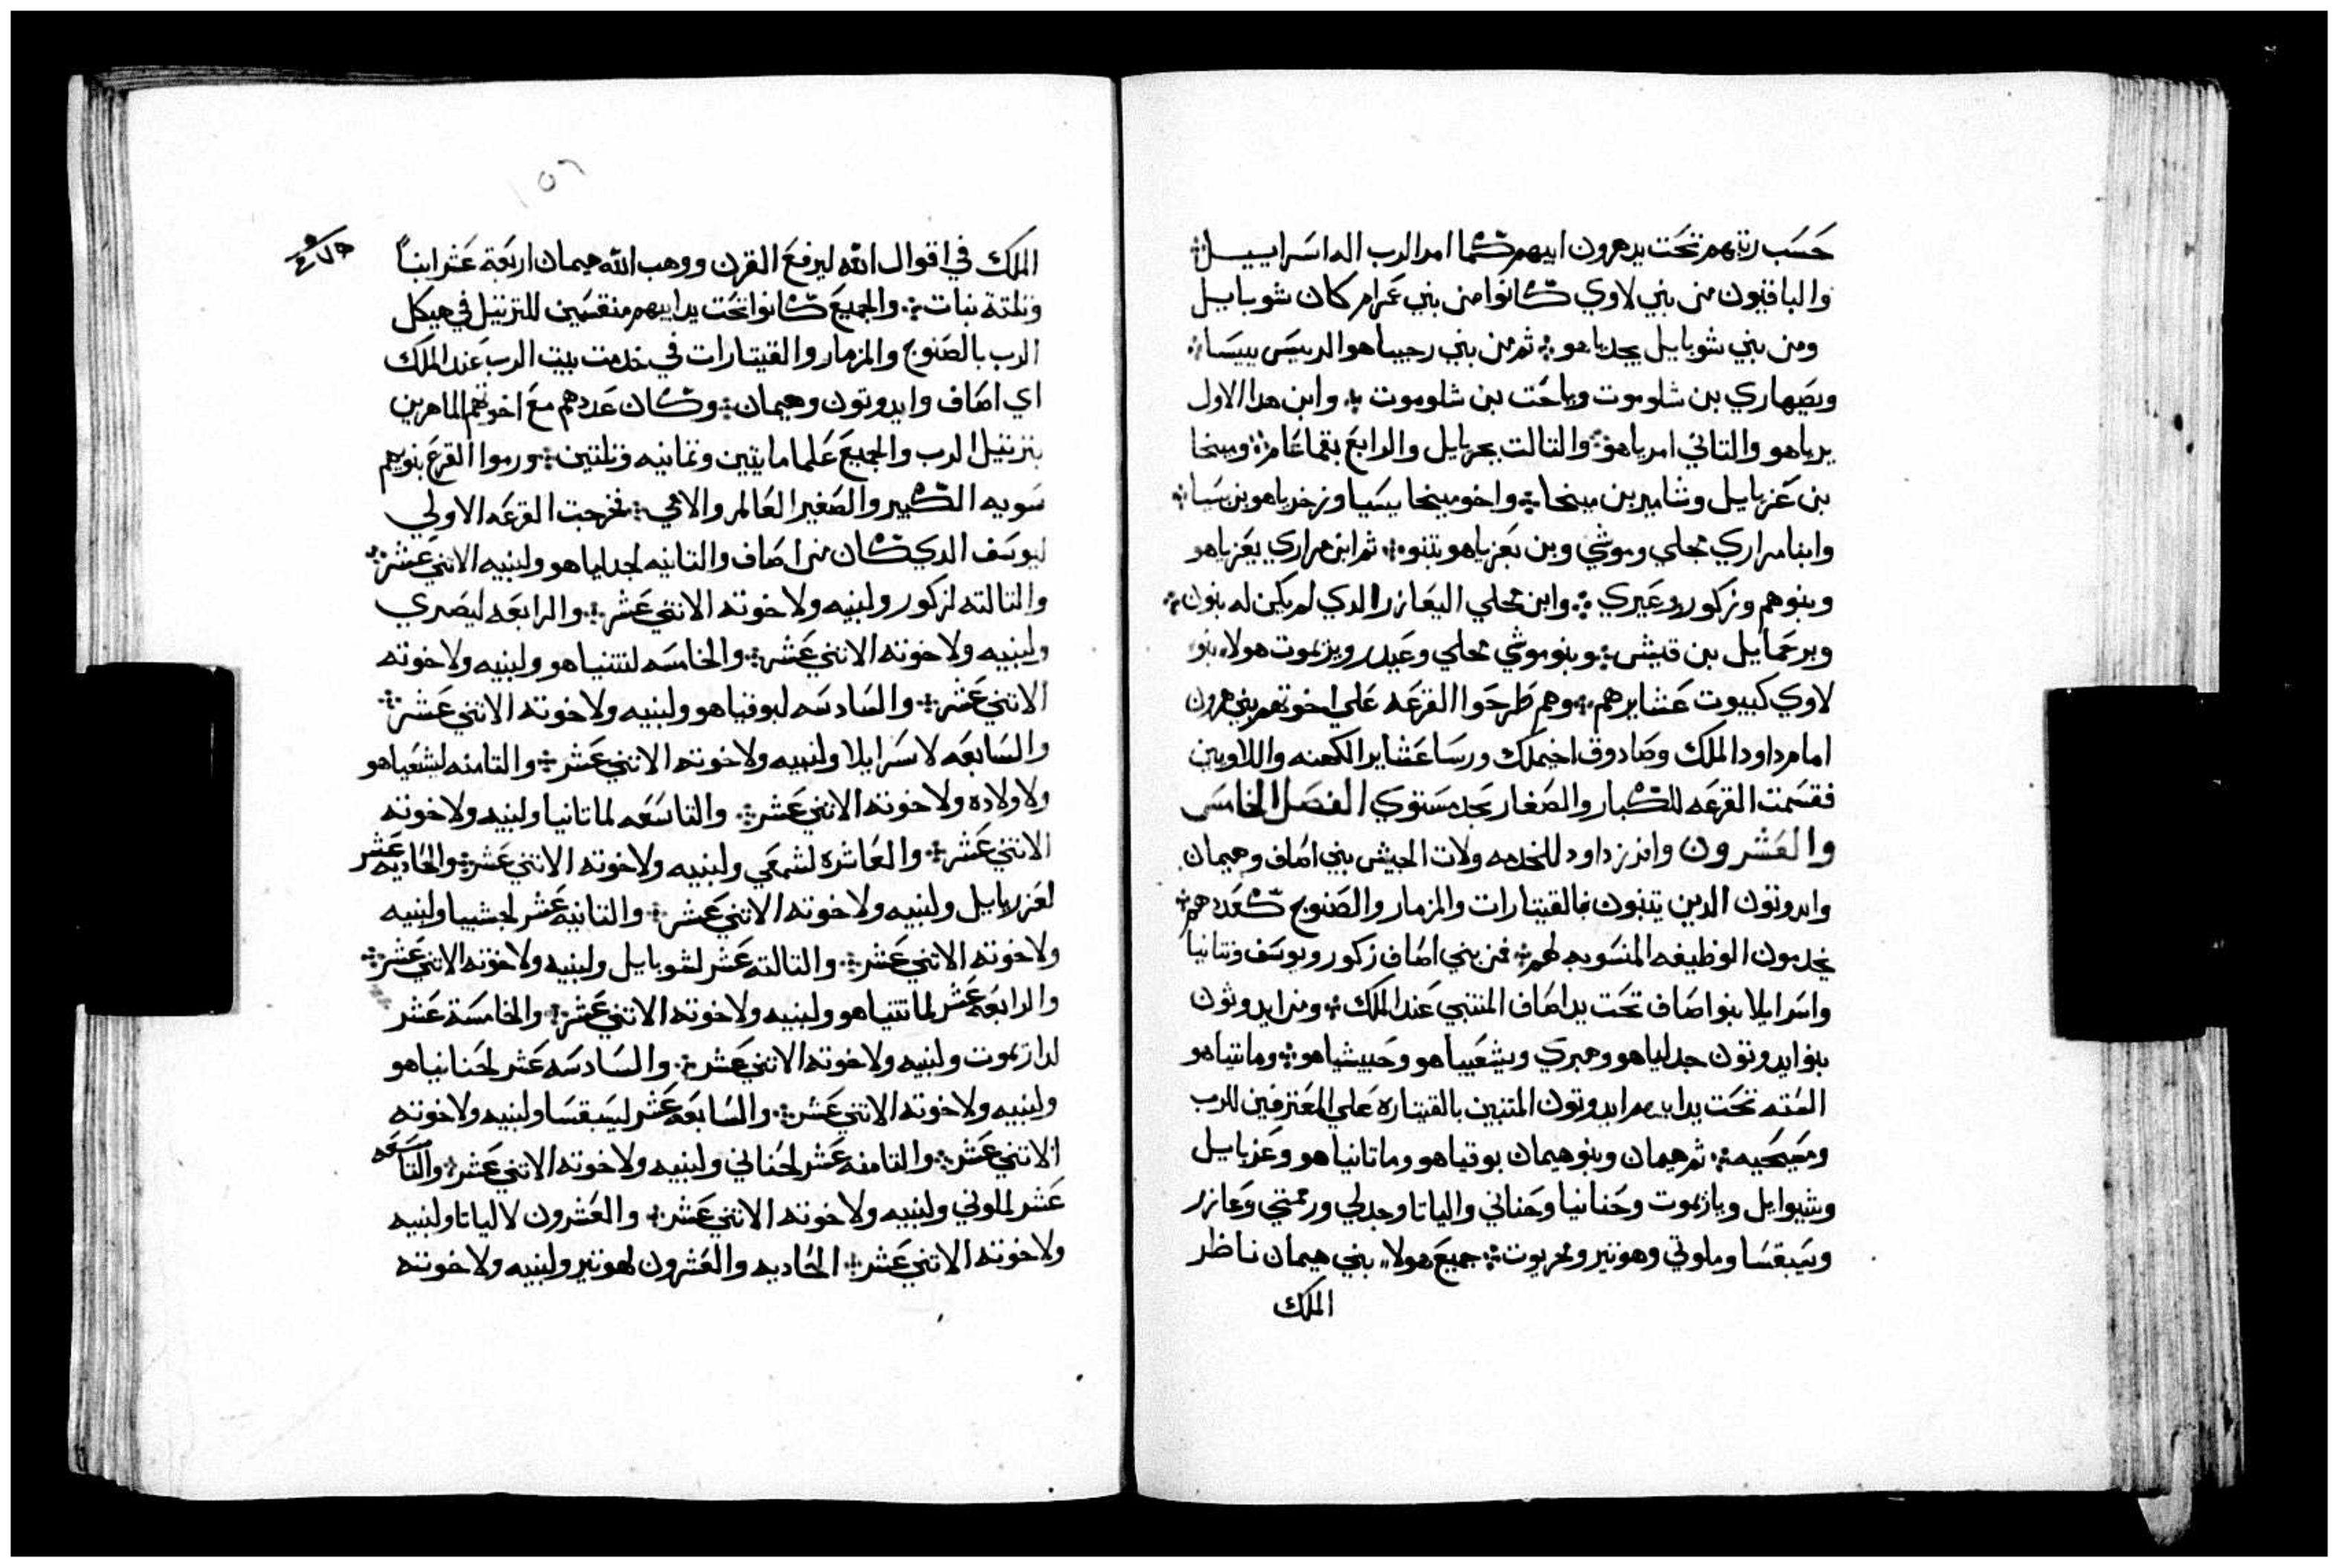 حسب رتبهم تحت يد هرون ابيهم كما امر الرب اله اسراييل
والباقيون من بني لاوي كانوا من بني عمرام كان شوبايل
ومن بني شوبايل يحدياهو ثم من بني رحبيا هو الرييس ييسا
ويصهاري بن شلوموت وياحت بن شلوموت وابن هدا الاول
يرياهو والتاني امرياهو والتالت يحزيايل والرابع يقماعام وميخا
بن عزيايل وشامير بن ميخا واخو ميخا يسيا وزخرياهو بن يسيا
وابنا مراري محلي وموشي وبن يعزياهو بنو ثم ابن مراري يعزياهو
وبنوهم وزكور وعيري وابن محلي اليعازر الدي لم يكن له بنون
ويرحمايل بن قيش وبنو موشي محلي وعيدر ويريموت هولاء بنو
لاوي كبيوت عشايرهم وهم طرحوا القرعه علي اخوتهم بني هرون
امام داود الملك وصادوق اخيملك ورسا عشاير الكهنه واللاويين
فقسمت القرعه للكبار والصغار بحد مستوي الفصل الخامس
والعشرون وافرز داود للخدمه ولات الجيش بني اصاف وهيمان
وايدوتون الدين يتنبون بالقيتارات والمزمار والصنوج كعددهم
يخدمون الوظيفه المنسوبه لهم فمن بني اصاف زكور ويوسف ونتانيا
واسرايلا بنو اصاف تحت يد اصاف المتنبي عند الملك ومن ايدوثون
بنو ايدوتون جدلياهو وصري ويشعيياهو وحبيشياهو ومانتياهو
السته تحت يد ابيهم ايدوتون المتنبين بالقيتاره علي المعترفين للرب
ومسبحيه ثم هيمان وبنو هيمان بوقياهو وماتانياهو وعزيايل
وشبوايل ويازيموت وحنانيا وحناني والياتا وجدلي ورممتي وعازر
ويسبقسا وملوتي وهوتير ومحزيوت جميع هولاء بني هيمان ناظر
الملك
١٥٦
الملك في اقوال الله ليرفع القرن ووهب الله هيمان اربعة عشر ابناً
وتلتة بنات والجميع كانوا تحت يد ابيهم منقسمين للترتيل في هيكل
الرب بالصنوج والمزمار والقيتارات في خدمت بيت الرب عند الملك
اي اصاف وايدوتون وهيمان وكان عددهم مع اخوتهم الماهرين
بترتيل الرب والجميع علما مايتين وتمانيه وتلتين ورموا القرع بنوبهم
سويه الكبير والصغير العالم والامي فخرجت القرعه الاولي
ليوسف الدي كان من اصاف والتانيه لجدلياهو ولبنيه الاتني عشر
والتالته لزكور ولبنيه ولاخوته الاتني عشر والرابعه ليصري
ولبنيه ولاخوته الاتني عشر والخامسه لنتنياهو ولبنيه ولاخوته
الاتني عشر والسادسه لبوقياهو ولبنيه ولاخوته الاتني عشر
والسابعه لاسرايلا ولبنيه ولاخوته الاتني عشر والتامنه لشعياهو
ولاولاده ولاخوته الاتني عشر والتاسعه لماتانيا ولبنيه ولاخوته
الاتني عشر والعاشره لشمعي ولبنيه ولاخوته الاتني عشر والحاديه عشر
لعزريايل ولبنيه ولاخوته الاتني عشر والتانيه عشر لحشبيا ولبنيه
ولاخوته الاتني عشر والتالته عشر لشوبايل ولبنيه ولاخوته الاتني عشر
والرابعه عشر لماتتياهو ولبنيه ولاخوته الاتني عشر والخامسة عشر
لدازيموت ولبنيه ولاخوته الاتني عشر والسادسه عشر لحنانياهو
ولبنيه ولاخوته الاتني عشر والسابعه عشر ليسبقسا ولبنيه ولاخوته
الاتني عشر والتامنه عشر لحناني ولبنيه ولاخوته الاتني عشر والتاسعه
عشر لملوتي ولبنيه ولاخوته الاتني عشر والعشرون لالياتا ولبنيه
ولاخوته الاتني عشر الحاديه والعشرون لهوتير ولبنيه ولاخوته